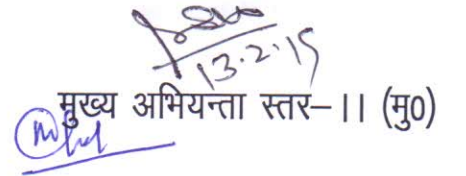 13.2.15
मुख्य अभियन्ता स्तर–।। (मु0)